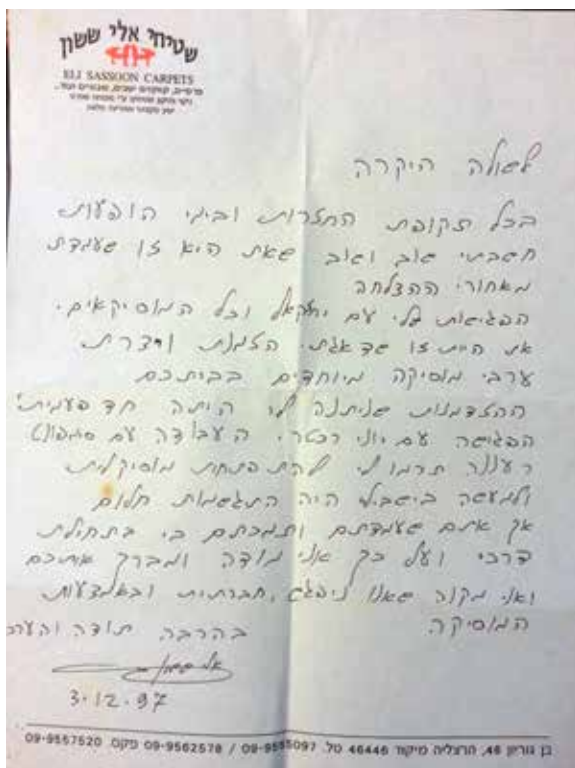 שטיחי אלי ששון
ELI SASSOON CARPETS
לשולה היקרה
בכל תקופת החזרות ובימי הופעות
חשבתי שוב ושוב שאת היא זו שעומדת
מאחורי ההצלחה
הפגישות שלי עם יחזקאל וכל המוסיקאים.
את היית זו שדאגת. הזמנת ויצרת
ערבי מוסיקה מיוחדים בביתכם
ההזדמנות שניתנה לי היתה חד פעמית!
הפגישה עם יוני רכטר. העבודה עם
רעננה תרמו לי להתפתחות מוסיקלית
ולמעשה בישבילי היה התגשמות חלום
אך אתם שעמדתם ותמכתם בי בתחילת
דרכי ועל כך אני מודה ומברך אתכם
ואני מקוה שאנו ניפגש, חברתית ובאמצעות
המוסיקה
בהרבה תודה והערכ
אלי ששון
3.12.97
בן גוריון 46, הרצליה מיקוד 46446 טל. 09-9555097 / 09-9562578 פקס. 09-9557520